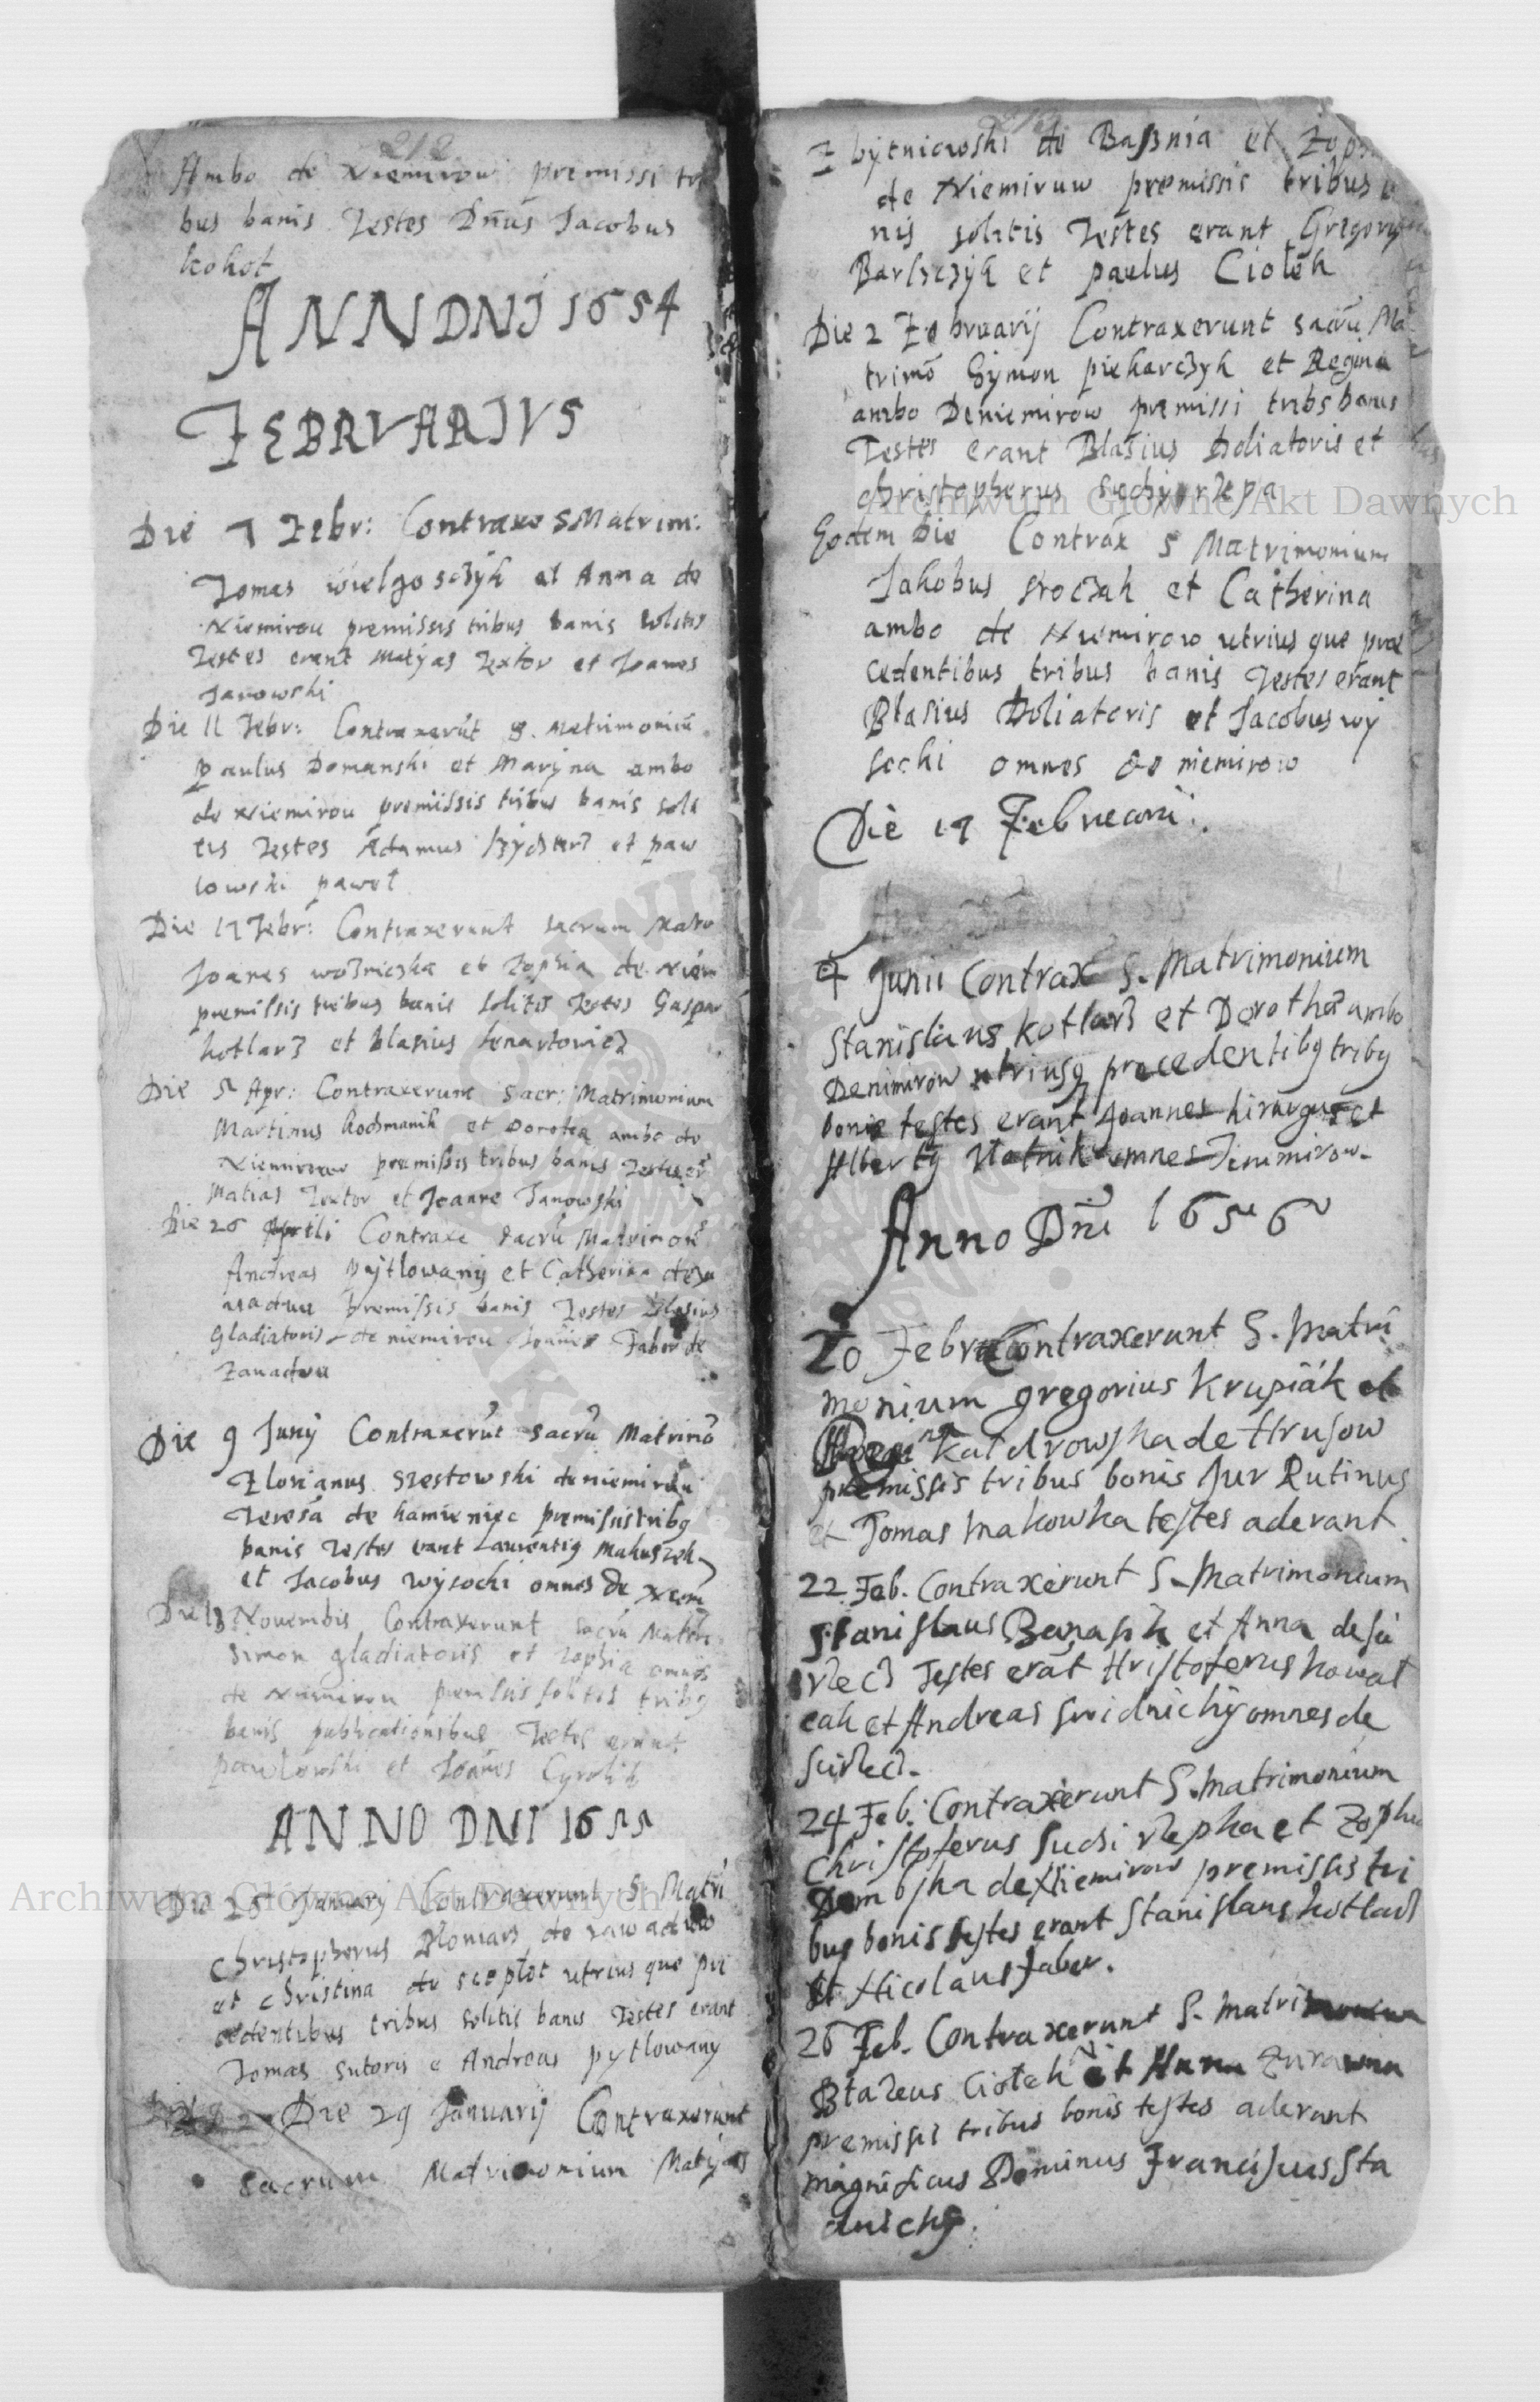 212
Ambo de Niemirow premissi tri
bus banis Testes Dnus Jacobus
kokot
ANN DNI 1654
FEBRVARIVS
Die 7 Febr: Contraxe S Matrim:
Tomas wielgosczyk et Anna de
Niemirou premissis tribus banis solitis
Testes erant Matyas Textor et Joanes
Janowski
Die 11 Febr: Contraxerut S. Matrimoniu
Paulus Domanski et Maryna ambo
de Niemirou premissis tribus banis soli
tis Testes Adamus et paw
lowski paweł
Die 17 Febr: Contraxerunt sacrum Matr
Joanes wozniczka et Zophia de Niem
premissis tribus banis solitis Testes Gaspar
kotlarz et Blasius Lenartowicz
Die 5 Apr: Contraxerunt Sacr: Matrimonium
Martinus kochmanik et Dorotea ambo de
Niemirow premissis tribus banis Testes er
Matias Textor et Joanne Janowski
Die 26 Aprili Contraxe sacru Matrimon
Andreas Pytlowany et Catherina de Za
wadow premissis banis Testes Blasius
Gladiatoris de niemirou Joanes Faber de
Zauadou
Die 9 Juny Contraxerut Sacru Matrimo
Florianus Szestowski de niemirou
Teresa de kamieniec premissis tribq
banis Testes erant Laurentiq Makuszek
et Jacobus Wysocki omnes de Niem
Die 13 Novembis Contraxerunt sacru Matri
Simon gladiatoris et Zophia omnes
de Niemirou premissis solitis tribq
banis publicationibus Testes erant
pawlowski et Joanes Cyrolik
ANNO DNI 1655
Die 25 January Contraxerunt S Matri
Christopherus de zawadow
et Christina de utrius que pre
cedentibus tribus solitis banis Testes erant
Tomas Sutoris e Andreas pytlowany
Die 29 Januarij Contraxerunt
Sacrum Matrimonium Matyas
Zbytniewski de Baßnia et Zoph
de Niemiruw premissis tribus
nis solitis Testes erant Gregory
Barszczyk et paulus Ciołek
Die 2 Februarij Contraxerunt sacru Ma
trimo Symon piekarczyk et Regina
ambo De niemirow premissi tribs banis
Testes erant Blasius Doliatoris et
christopherus suchyrzepa
Eodem Die Contrax S Matrimonium
Jakobus sroczak et Catherina
ambo de Niemirow utrius que prae
cedentibus tribus banis Testes erant
Blasius Doliatoris et Jacobus wy
socki omnes de niemirow
Die 17 Februarii.
4 Junii Contrax S. Matrimonium
Stanislaus kotlarz et Dorothea ambo
De nimirow utriusq precedentibq tribq
bonis testes erant Joannes hirurgus et
Albertq omnes De nimirow
Anno Dni 1656
20 Febr Contraxerunt S. Matri
monium gregorius Krupiak et
Regina Katdrowska de Hrusow
premissis tribus bonis Jur Rutinus
et Tomas Makowka testes aderant
22 Feb. Contraxerunt S. Matrimonium
Stanislaus Banasik et Anna de Sie
dlecz Testes erat Hristoferus kowal
cak et Andreas Swidnichy omnes de
Sidlecz.
24 Feb. Contraxerunt S. Matrimonium
Christoferus Suchi rzepha et Zophia
Dembska de Niemirow premissis tri
bus bonis testes erant Stanislaus kotlarz
et Nicolaus Faber.
26 Feb. Contraxerunt S. Matrimonium
Błazeus Ciołek et Anna Zurawna
premissis tribus bonis testes aderant
magnificus Dominus Franciscus Sta
dnicky.
Archiwum Główne Akt Dawnych
Archiwum Główne Akt Dawnych